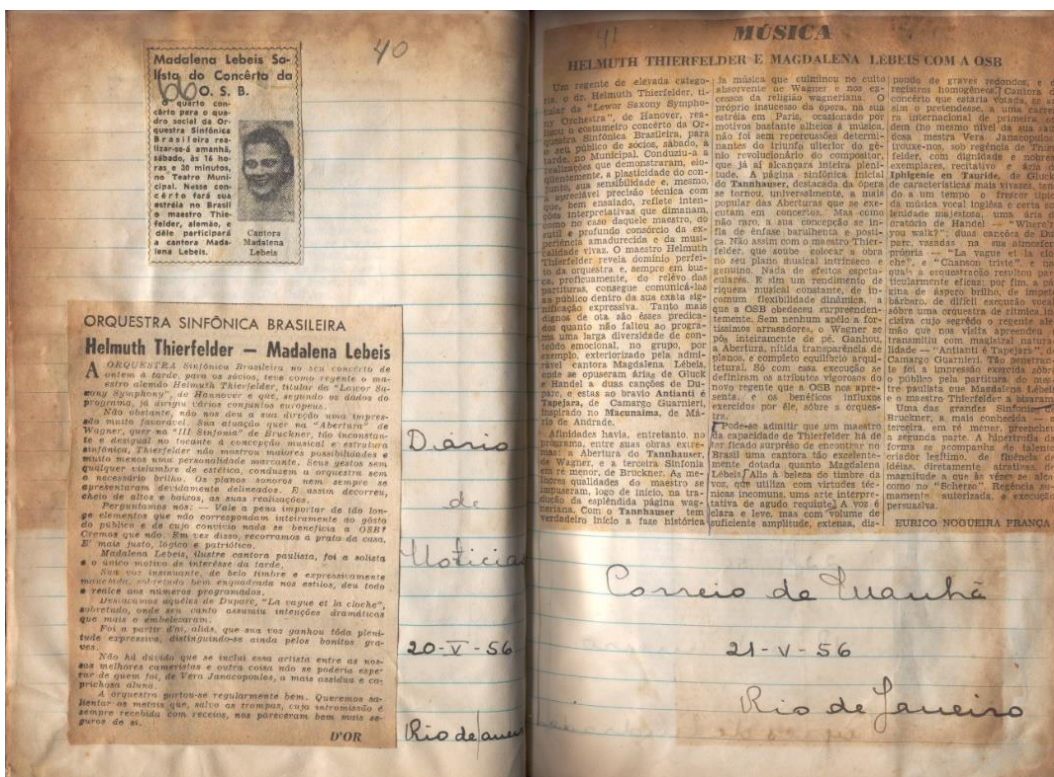 40
Madalena Lebeis So-
lista do Concêrto da
O. S. B.
O quarto con-
cêrto para o qua-
dro social da Or-
questra Sinfônica
Brasileira rea-
lizar-se-á amanhã,
sábado, às 16 ho-
ras e 30 minutos,
no Teatro Muni-
cipal. Nesse con-
cêrto fará sua
estréia no Brasil
o maestro Thie-
felder, alemão, e
dêle participará
a cantora Mada-
lena Lebeis.
Cantora
Madalena
Lebeis
ORQUESTRA SINFÔNICA BRASILEIRA
Helmuth Thierfelder — Madalena Lebeis
A ORQUESTRA Sinfônica Brasileira no seu concêrto de
ontem à tarde, para os sócios, teve como regente o ma-
estro alemão Helmuth Thierfelder, titular da "Lower Sa-
xony Symphony", de Hannover e que, segundo os dados do
programa, já dirigiu vários conjuntos europeus.
Não obstante, não nos deu a sua direção uma impres-
são muito favorável. Sua atuação quer na "Abertura" de
Wagner, quer na "III Sinfonia" de Bruckner, tão inconstan-
te e desigual no tocante à concepção musical e estrutura
sinfônica, Thierfelder não mostrou maiores possibilidades e
muito menos uma personalidade marcante. Seus gestos sem
qualquer vislumbre de estética, conduzem a orquestra sem
o necessário brilho. Os planos sonoros nem sempre se
apresentaram devidamente delineados. E assim decorreu,
cheio de altos e baixos, as suas realizações.
Perguntamos nós: — Vale a pena importar de tão lon-
ge elementos que não correspondam inteiramente ao gôsto
do público e de cujo convívio nada se beneficia a OSB?
Cremos que não. Em vez disso, recorramos à prata da casa.
E' mais justo, lógico e patriótico.
Madalena Lebeis, ilustre cantora paulista, foi a solista
e o único motivo de interêsse da tarde.
Sua voz insinuante, de belo timbre e expressivamente
manejada, sobretudo bem enquadrada nos estilos, deu todo
o realce aos números programados.
Destacamos aquêles de Duparc, "La vague et la cloche",
sobretudo, onde seu canto assumiu intenções dramáticas
que mais o embelezaram.
Foi a partir daí, aliás, que sua voz ganhou tôda pleni-
tude expressiva, distinguindo-se ainda pelos bonitos gra-
ves.
Não há dúvida que se inclui essa artista entre as nos-
sas melhores cameristas e outra coisa não se poderia espe-
rar de quem foi, de Vera Janacopoulos, a mais assídua e ca-
prichosa aluna.
A orquestra portou-se regularmente bem. Queremos sa-
lientar os metais que, salvo as trompas, cuja intromissão é
sempre recebida com receios, nos pareceram bem mais se-
guros de si.
D'OR
Diário
de
Noticias
20-V-56
Rio de Janei
41
MÚSICA
HELMUTH THIERFELDER E MAGDALENA LEBEIS COM A OSB
Um regente de elevada catego-
ria, o dr. Helmuth Thierfelder, ti-
tular da "Lower Saxony Sympho-
ny Orchestra", de Hanover, rea-
lizou o costumeiro concêrto da Or-
questra Sinfônica Brasileira, para
o seu público de sócios, sábado, à
tarde, no Municipal. Conduziu-a a
realizações que demonstraram, elo-
qüentemente, a plasticidade do con-
junto, sua sensibilidade e, mesmo,
a apreciável precisão técnica com
que, bem ensaiado, reflete inten-
ções interpretativas que dimanam,
como no caso daquele maestro, do
sutil e profundo consórcio da ex-
periência amadurecida e da musi-
calidade vivaz. O maestro Helmuth
Thierfelder revela domínio perfei-
to da orquestra e, sempre em bus-
ca, proficuamente, do relêvo das
partituras, consegue comunicá-las
ao público dentro da sua exata sig-
nificação expressiva. Tanto mais
dignos de ota são êsses predica-
dos quanto não faltou ao progra-
ma uma larga diversidade de con-
teúdo emocional, no grupo, por
exemplo, exteriorizado pela admi-
rável cantora Magdalena Lébeis,
onde se opuseram árias de Gluck
e Handel a duas canções de Du-
parc, e estas ao bravio Antianti é
Tapejara, de Camargo Guarnieri,
inspirado no Macunaíma, de Má-
rio de Andrade.
Afinidades havia, entretanto, no
programa, entre suas obras extre-
mas: a Abertura do Tannhauser,
de Wagner, e a terceira Sinfonia
em ré menor, de Brückner. As me-
lhores qualidades do maestro se
impuseram, logo de início, na tra-
dução da esplêndida página wag-
neriana. Com o Tannhauser tem
verdadeiro início a fase histórica
da música que culminou no culto
absorvente de Wagner e nos ex-
cessos da religião wagneriana. O
próprio insucesso da ópera, na sua
estréia em Paris, ocasionado por
motivos bastante alheios à música,
não foi sem repercussões determi-
nantes do triunfo ulterior do gê-
nio revolucionário do compositor,
que já aí alcançara inteira pleni-
tude. A página sinfônica inicial
do Tannhauser, destacada da ópera
se tornou, universalmente, a mais
popular das Aberturas que se exe-
cutam em concertos. Mas como
não raro, a sua concepção se in-
fla de ênfase barulhenta e posti-
ça. Não assim com o maestro Thier-
felder, que soube colocar a obra
no seu plano musical intrínseco e
genuíno. Nada de efeitos espeta-
culares. E sim um rendimento de
riqueza musical constante, de in-
comum flexibilidade dinâmica, a
que a OSB obedeceu surpreenden-
temente. Sem nenhum apêlo a for-
tíssimos arrasadores, o Wagner se
pôs inteiramente de pé. Ganhou,
a Abertura, nítida transparência de
planos, e completo equilíbrio arqui-
tetural. Só com essa execução se
definiram os atributos vigorosos do
novo regente que a OSB nos apre-
senta, e os benéficos influxos
exercidos por êle, sôbre a orques-
tra.
Pode-se admitir que um maestro
da capacidade de Thierfelder há de
ter ficado surprêso de encontrar no
Brasil uma cantora tão excelente-
mente dotada quanto Magdalena
Lébeis. Alia à beleza do timbre da
voz, que utiliza com virtudes téc-
nicas incomuns, uma arte interpre-
tativa de agudo requinte. A voz é
clara e leve, mas com volume de
suficiente amplitude, extensa, dis-
pondo de graves redondos, e
registros homogêneos. Cantora
concêrto que estaria votada, se as-
sim o pretendesse, a uma carrei-
ra internacional de primeira or-
dem (no mesmo nível da sua sau-
dosa mestra Vera Janacopoulos)
trouxe-nos, sob regência de Thier-
felder, com dignidade e nobreza
exemplares, recitativo e ária de
Iphigenie en Tauride, de Gluck
de características mais vivazes, ten-
do a um tempo o frescor típico
da música vocal inglêsa e certa so-
lenidade majestosa, uma ária de
oratório de Handel — "Where'er
you walk?" duas canções de Du-
parc, vazadas na sua atmosfera
própria — "La vague et la clo-
che", e "Chanson triste", e na
quais a orquestração resultou par-
ticularmente eficaz; por fim, a pá-
gina de áspero brilho, de ímpeto
bárbaro, de difícil execução vocal
sôbre uma orquestra de rítmica in-
cisiva cujo segrêdo o regente ale-
mão e nos visita apreendeu e
transmitiu com magistral acuida-
de — "Antianti é Tapejara", de
Camargo Guarnieri. Tão penetran-
te foi a impressão exercida sôbre
o público pela partitura do mes-
tre paulista que Magdalena Lébeis
e o maestro Thierfelder a bisaram.
Uma das grandes Sinfonias de
Bruckner, a mais conhecida, a
terceira, em ré menor, preencheu
a segunda parte. A hipertrofia da
forma se acompanha de talento
criador legítimo, de fluência de
idéias, diretamente atrativas, de
magnitude a que às vêzes se alça
como no "Scherzo". Regência su-
mamente autorizada, e execução
persuasiva.
EURICO NOGUEIRA FRANÇA
Correio da Manhã
21-V-56
Rio de Janeiro